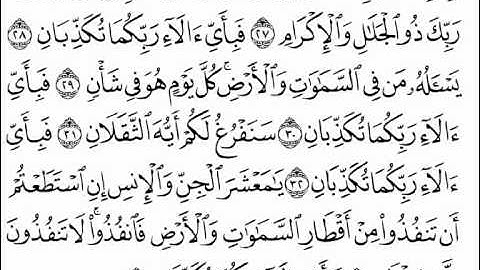 رَبِّكَ ذُو ٱلْجَلَٰلِ وَٱلْإِكْرَامِ ٢٧ فَبِأَيِّ ءَالَآءِ رَبِّكُمَا تُكَذِّبَانِ ٢٨
يَسْـَٔلُهُۥ مَن فِى ٱلسَّمَٰوَٰتِ وَٱلْأَرْضِ ۚ كُلَّ يَوْمٍ هُوَ فِى شَأْنٍ ٢٩ فَبِأَيِّ
ءَالَآءِ رَبِّكُمَا تُكَذِّبَانِ ٣٠ سَنَفْرُغُ لَكُمْ أَيُّهَ ٱلثَّقَلَانِ ٣١ فَبِأَيِّ
ءَالَآءِ رَبِّكُمَا تُكَذِّبَانِ ٣٢ يَٰمَعْشَرَ ٱلْجِنِّ وَٱلْإِنسِ إِنِ ٱسْتَطَعْتُمْ
أَن تَنفُذُوا۟ مِنْ أَقْطَارِ ٱلسَّمَٰوَٰتِ وَٱلْأَرْضِ فَٱنفُذُوا۟ ۚ لَا تَنفُذُونَ